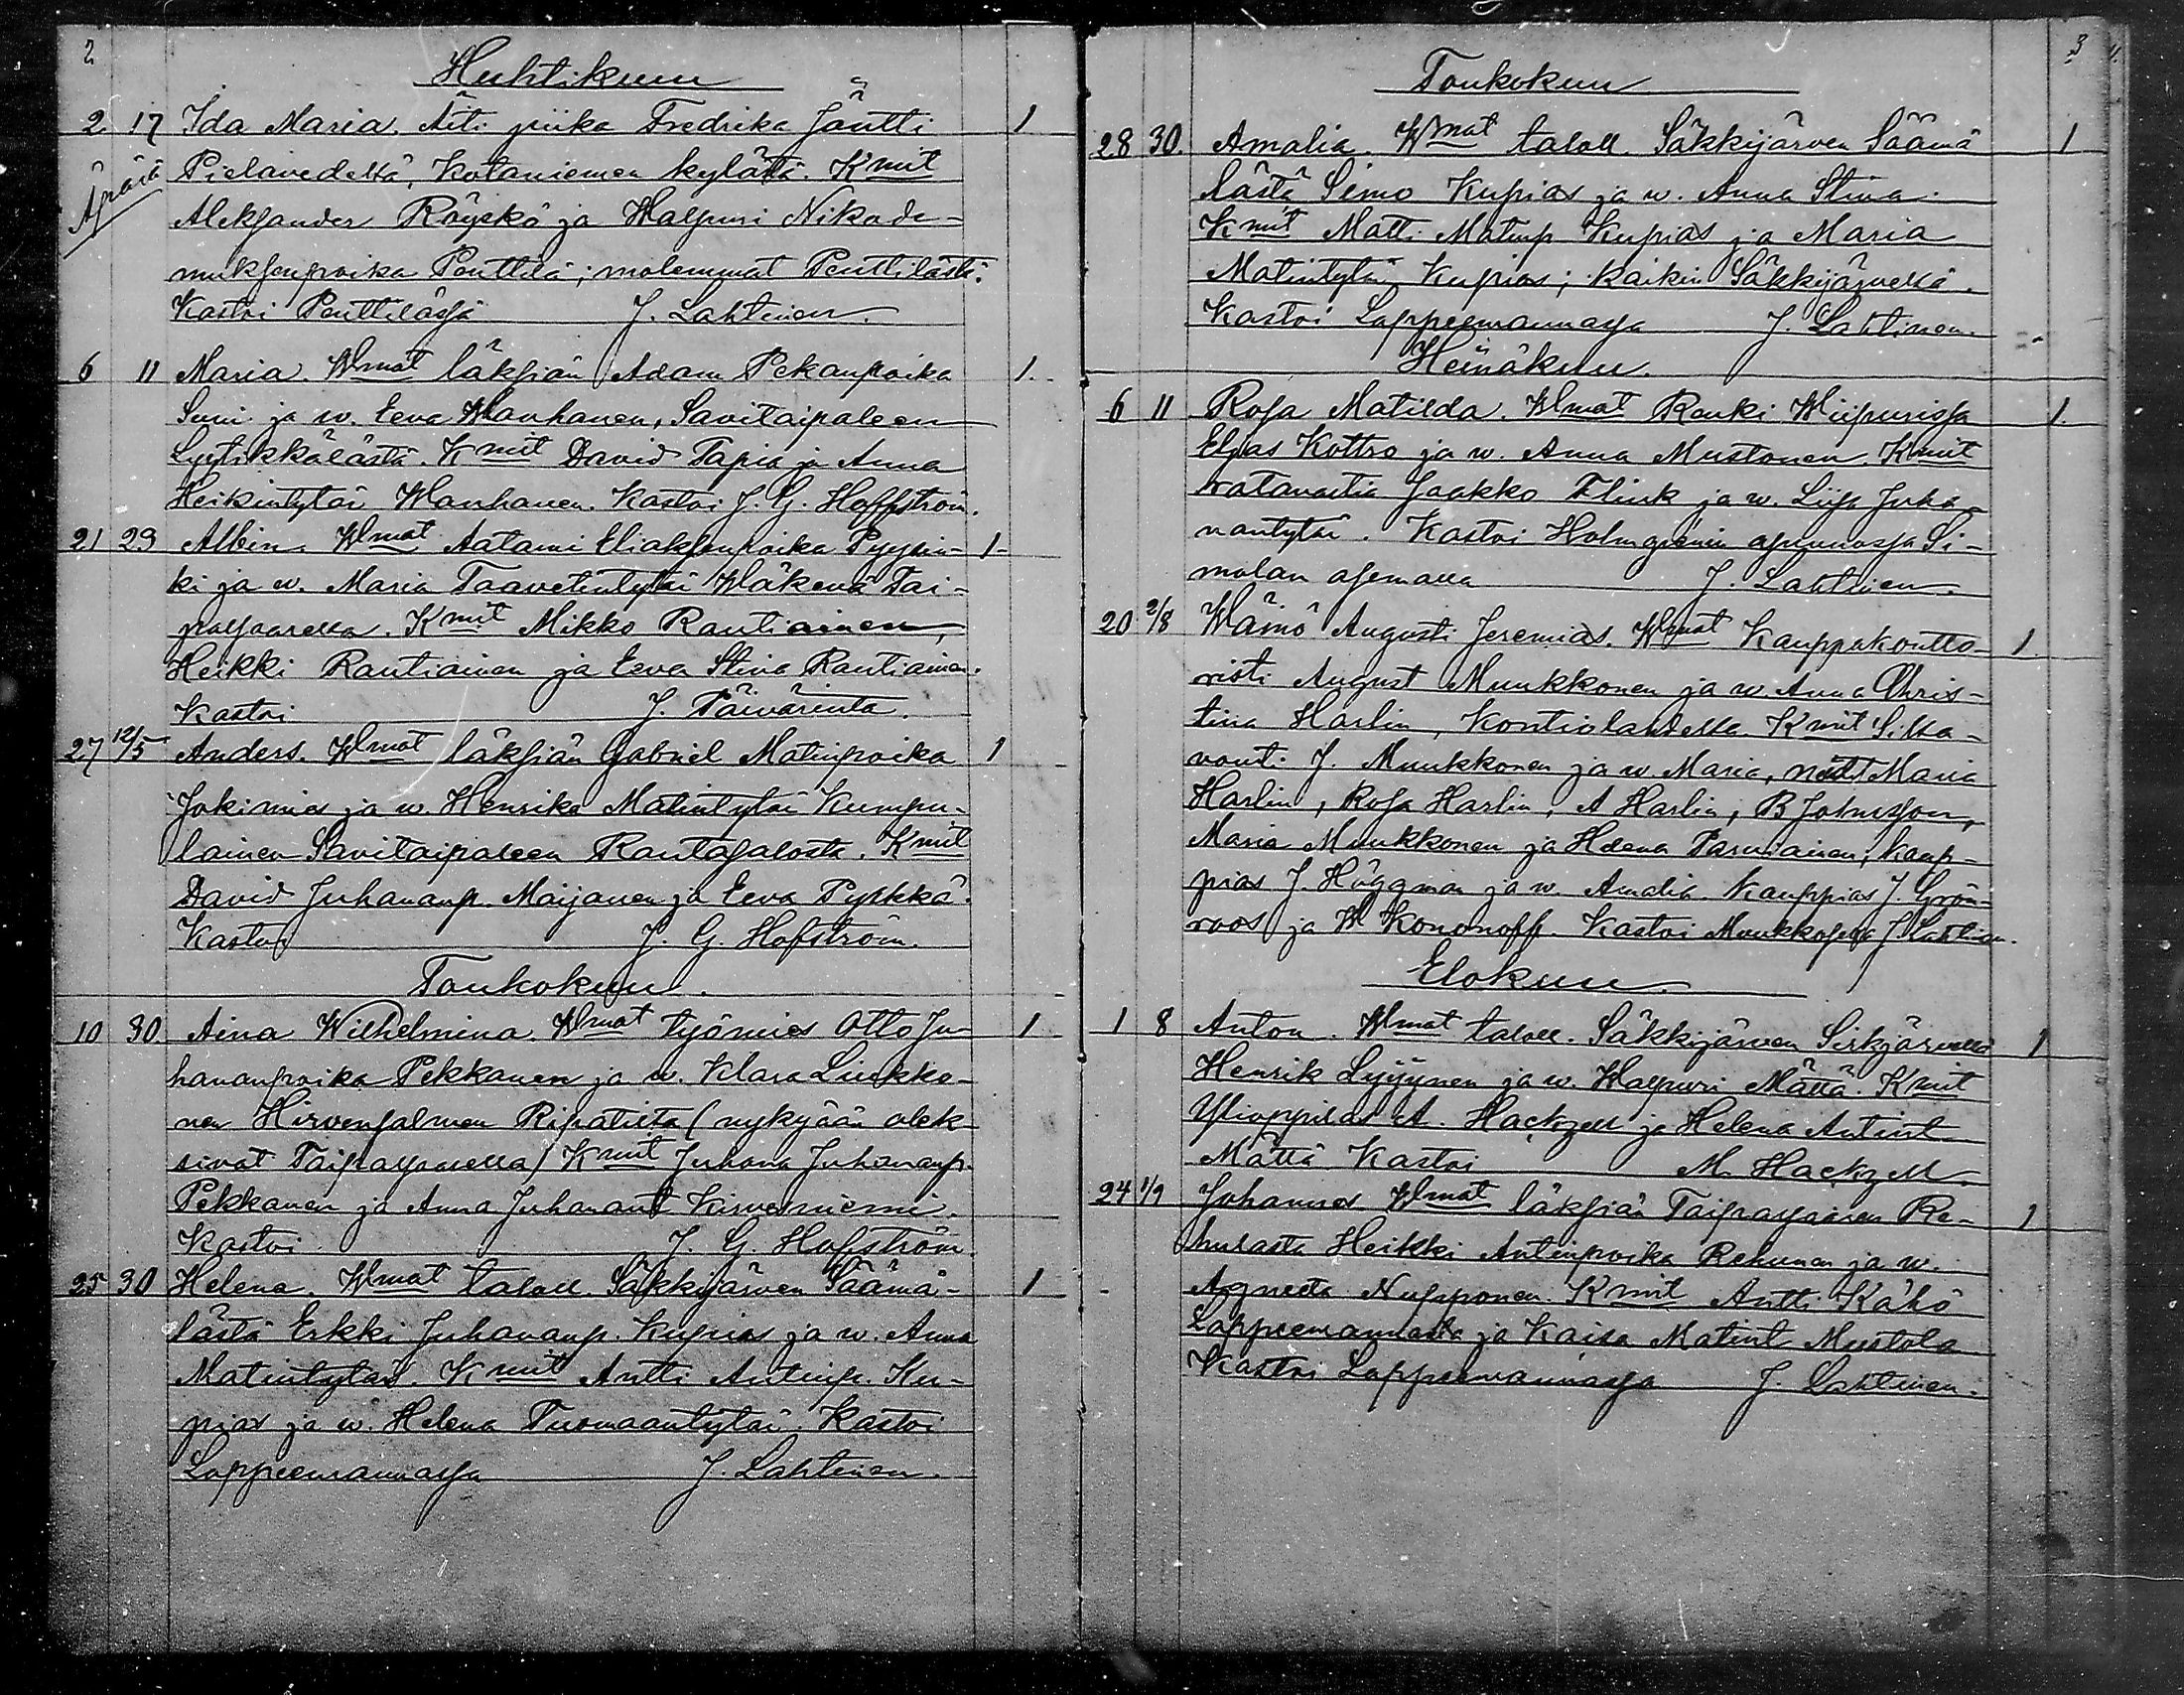 2
Huhtikuu
2. 17 Ida Maria. Äiti piika Fredrika Jäntti 1
Äpärä Pielavedeltä, Kotaniemen kylästä. Kmit
Aleksander Röyskö ja Walpuri Nikode-
muksenpoika Penttilä; molemmat Penttilästä.
Kastoi Penttilässä J. Lahtinen.
6 11 Maria. Wmat läksiän Adam Pekanpoika 1.
Suni ja w. Eeva Wanhanen, Savitaipaleen
Lyytikkälästä. Kmit David Tapia ja Anna
Heikintytär Wanhanen. Kastoi J. G. Hoffström.
21 29 Albin. Wmat Aatami Eliaksenpoika Pyysin- 1
ki ja w. Maria Taavetintytär Wäkevä Tai-
palsaarella. Kmit Mikko Rautiainen,
Heikki Rautiainen ja Eeva Stina Rautiainen.
Kastoi J. Päivärinta.
27 12/5 Anders. Wmat läksiän Gabriel Matinpoika 1
Jokimies ja w. Henrika Matintytär Kumpu-
lainen Savitaipaleen Rantasalosta. Kmit
David Juhananp. Maijanen ja Eeva Pylkkä.
Kastoi J. G. Hofström.
Toukokuu.
10 30 Aina Wilhelmina. Wmat työmies Otto Ju- 1
hananpoika Pekkanen ja w. Klara Liukko-
nen Hirvensalmen Ripatista (nykyään olek-
sivat Taipalsaarella) Kmit Juhana Juhananp.
Pekkanen ja Anna Juhanant Kirvesniemi.
Kastoi J. G. Hofström.
25 30 Helena. Wmat taloll. Säkkijärven Säämä- 1
lästä Erkki Juhananp. Kupias ja w. Anna
Matintytär. Kmit Antti Antinp. Ku-
pias ja w. Helena Tuomaantytär. Kastoi
Lappeenrannassa J. Lahtinen.
3
Toukokuu
28 30. Amalia. Wmat taloll. Säkkijärven Säämä 1
lästä Simo Kupias ja w. Anna Stina.
Kmit Matti Matinp Kupias ja Maria
Matintytär Kupias; kaikin Säkkijärveltä.
Kastoi Lappeenrannassa J. Lahtinen.
Heinäkuu.
6 11 Rosa Matilda. Wmat Renki Wiipurissa 1.
Elias Kottro ja w. Anna Mustonen. Kmit
ratavartia Jaakko Flink ja w. Liisa Juha-
nantytär. Kastoi Holmgrenin asunnossa Si-
molan asemalla J. Lahtinen.
20 2/8 Wäinö Augusti Jeremias. Wmat Kauppakontto- 1.
risti August Muukkonen ja w. Anna Chris-
tina Harlin, Kontiolahdella. Kmit Silta-
vouti J. Muukkonen ja w. Maria, Maria
Harlin, Rosa Harlin, A Harlin, B Johnsson,
Maria Muukkonen ja Helena Parviainen, kaup-
pias J. Häggman ja w. Amalia. Kauppias J. Grön-
roos ja W Kononoff. Kastoi J Lahtinen.
Elokuu.
1 8 Anton. Wmat taloll. Säkkijärven Sirkjärveltä 1
Henrik Lyijynen ja w. Walpuri Mättä. Kmit
Ylioppilas A. Hackzell ja Helena Antint
Mättä Kastoi M. Hackzell.
24 1/9 Johannes Wmat läksiän Taipalsaaren Re- 1
hulasta Heikki Antinpoika Rehunen ja w.
Agneeta Nupponen. Kmit Antti Kähö
Lappeenrannasta ja Kaisa Matint Mustola
Kastoi Lappeenrannassa J. Lahtinen.